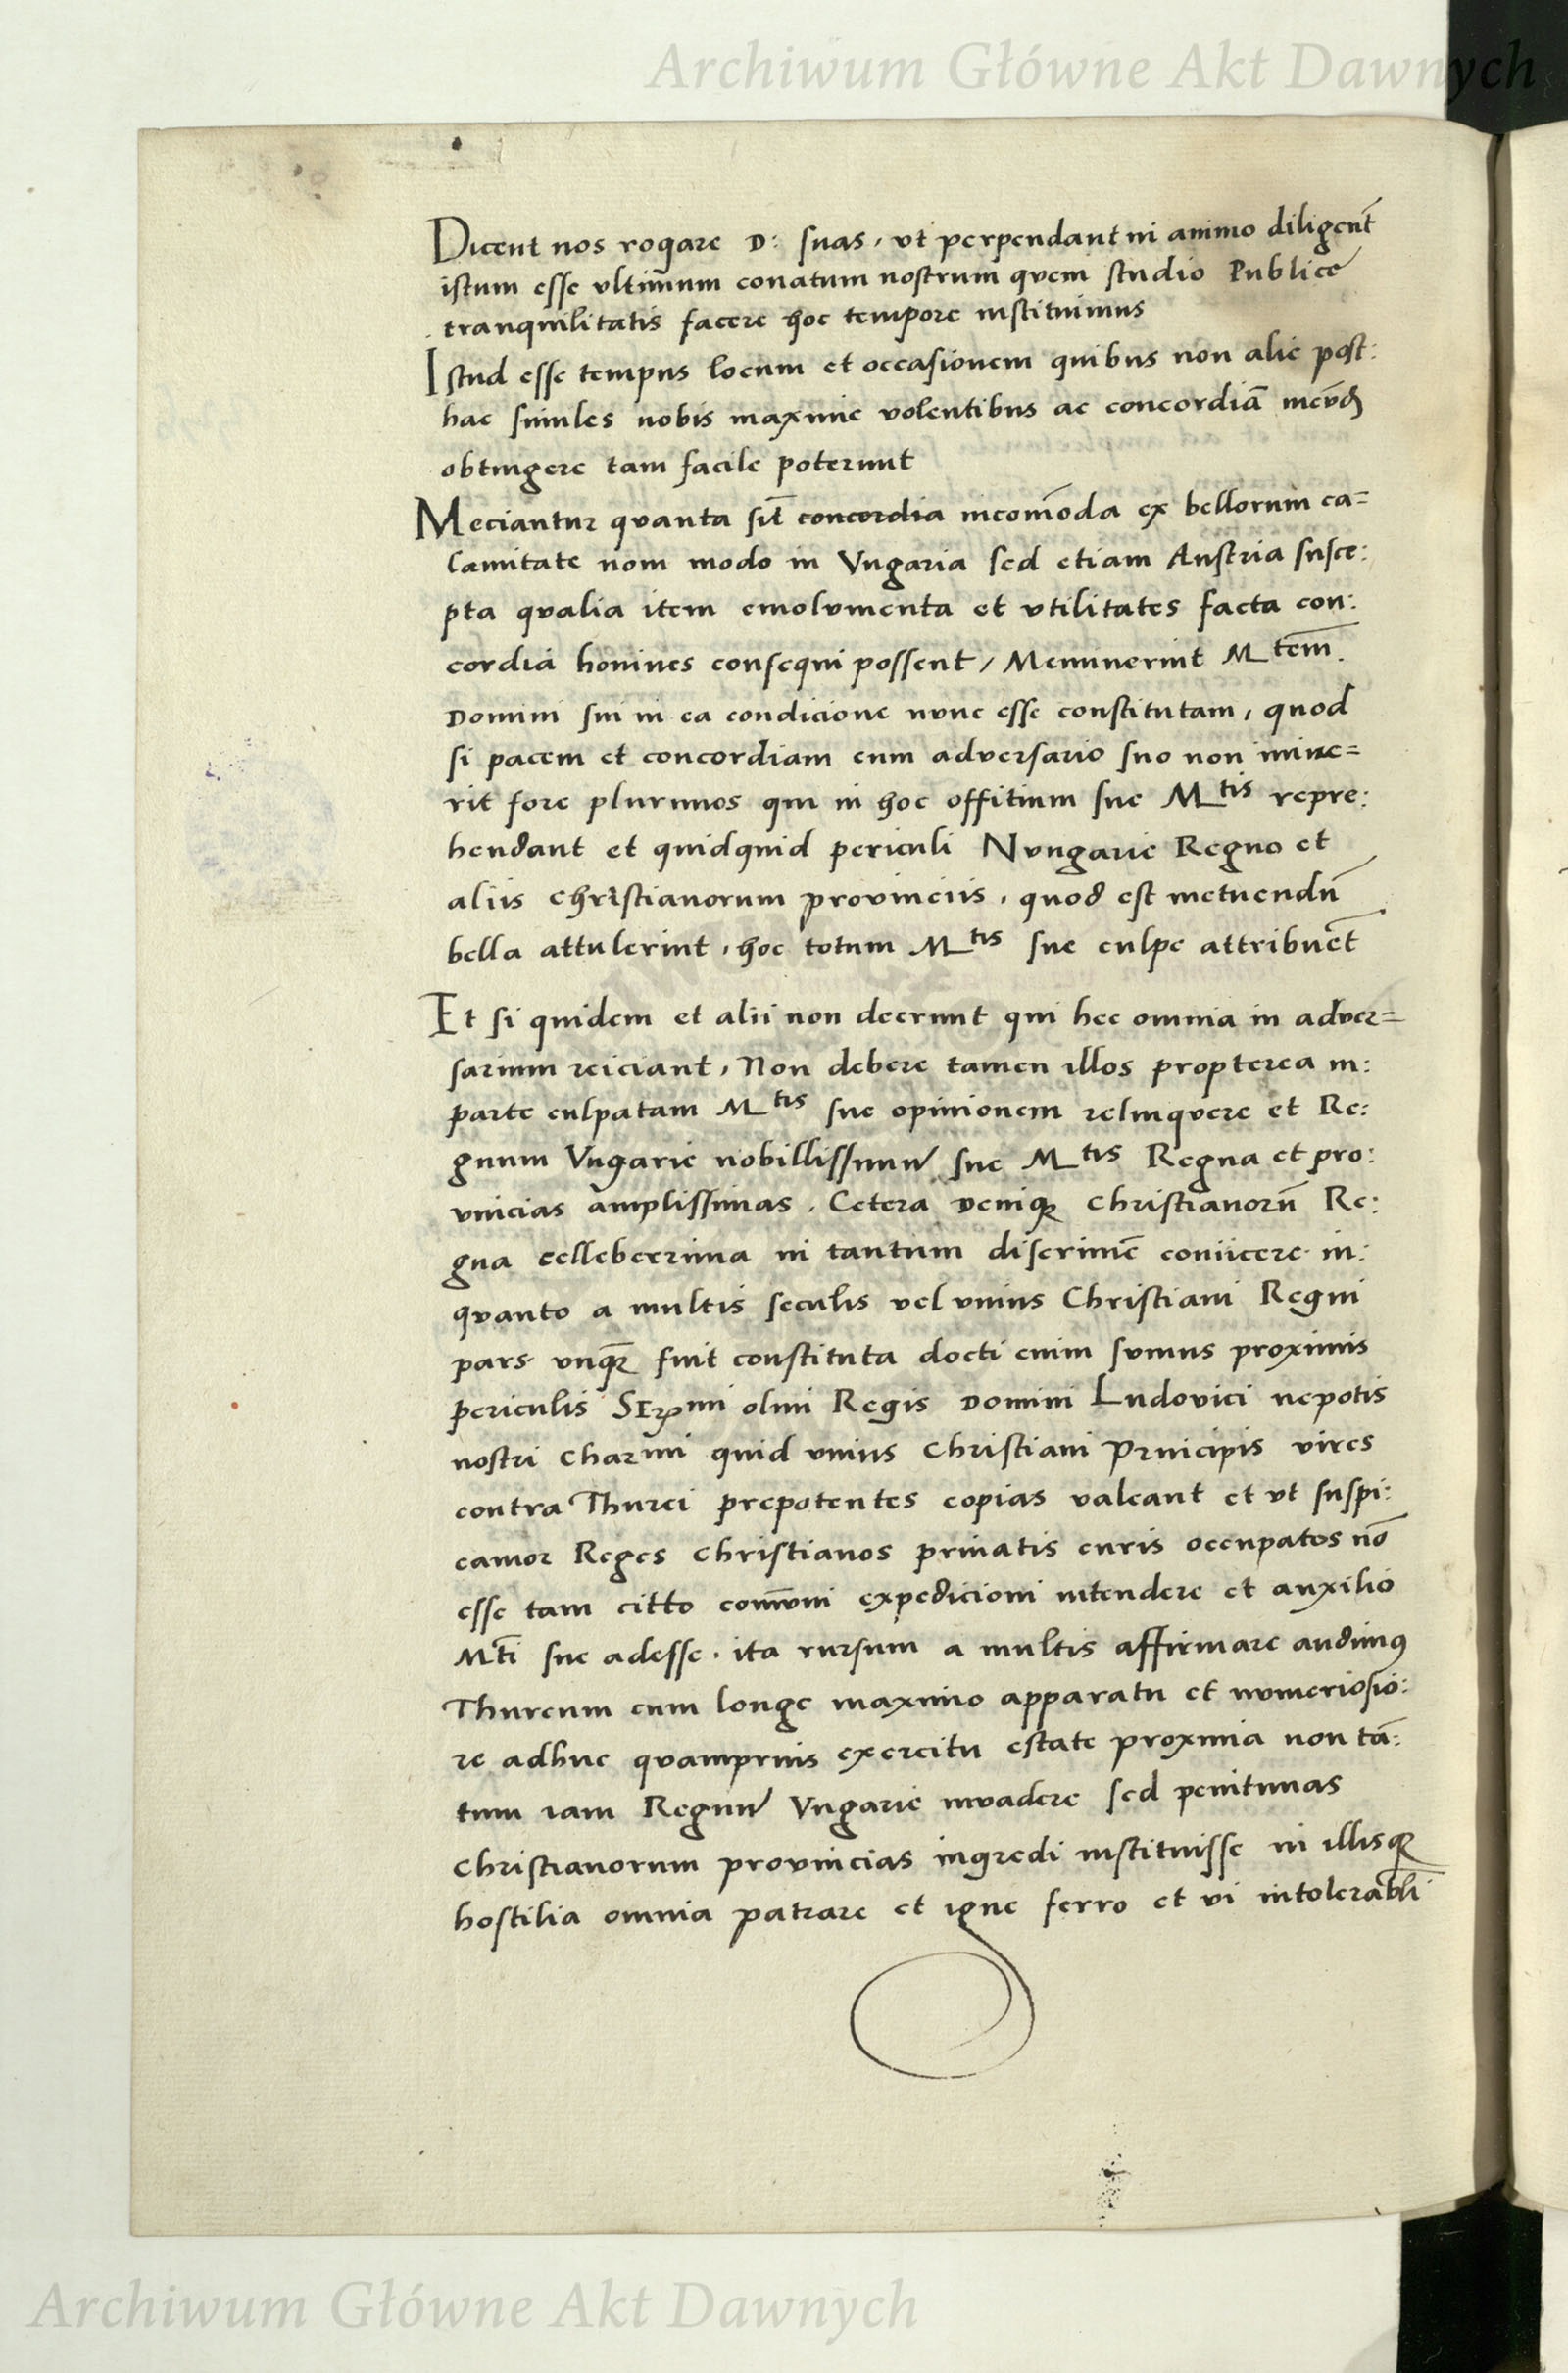 Archiwum Główne Akt Dawnych
Dicent nos rogare D: suas, ut perpendant in animo diligent̄
istum esse ultimum conatum nostrum quem studio Publice
tranquilitatis facere hoc tempore instituimus
Istud esse tempus locum et occasionem quibus non alie post:
hac similes nobis maxime volentibus ac concordiā
obtingere tam facile poterunt
Meciantur quanta sīt concordia incom̄oda ex bellorum ca=
lamitate nom modo in Vngaria sed etiam Austria susce:
pta qvalia item emolvmenta et vtilitates facta con:
cordia homines consequi possent, Meminerint Mtem̄.
Domini sui in ea condicione nvnc esse constitutam, quod
si pacem et concordiam cum adversario suo non inive=
rit fore plurimos qui in hoc offitium sue Mtis repre:
hendant et quidquid periculi Nvngarie Regno et
aliis christianorum provinciis, quod est metuendū
bella attulerint, hoc totum Mtis sue culpe attribuēt
Et si quidem et alii non deerunt qui hec omnia in adver=
sarium reiciant, Non debere tamen illos propterea in:
parte culpatam Mtis sue opinionem relinqvere et Re:
gnum Vngarie nobillissimum sue Mtis Regna et pro:
vincias amplissimas, Cetera deniqꝫ christianorū Re:
gna celleberrima in tantum discrimē coniicere in:
qvanto a multis seculis vel vnius Christiani Regni
pars vnqꝫ fuit constituta docti enim sumus proximis
periculis Serᵐⁱ olim Regis Domini Ludovici nepotis
nostri charᵐⁱ quid vnius christiani Principis vires
contra Thurci prepotentes copias valeant et vt suspi:
camor Reges christianos privatis curis occupatos nō
esse tam citto com̄vni expedicioni intendere et auxilio
Mtī sue adesse, ita rursum a multis affirmare audimꝰ
Thurcum cum longe maximo apparatu et nvmeriosio:
re adhuc qvamprius exercitu estate proxima non tā:
tum iam Regnum Vngarie invadere sed penitimas
christianorum provincias ingredi instituisse in illisqꝫ
hostilia omnia patrare et igne ferro et vi intolerabłi
Archiwum Główne Akt Dawnych